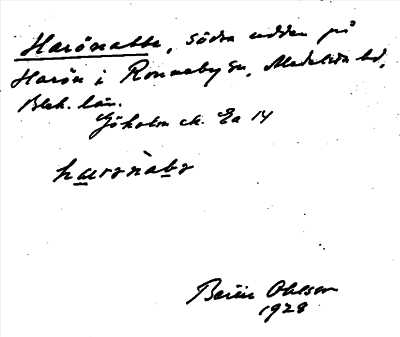 Harönabbe, södra udden på
Harön i Ronneby sn, Medelsta hd,
Blek. län.
Göholm ek. Ea 14
Bertil Ohlsson
1928